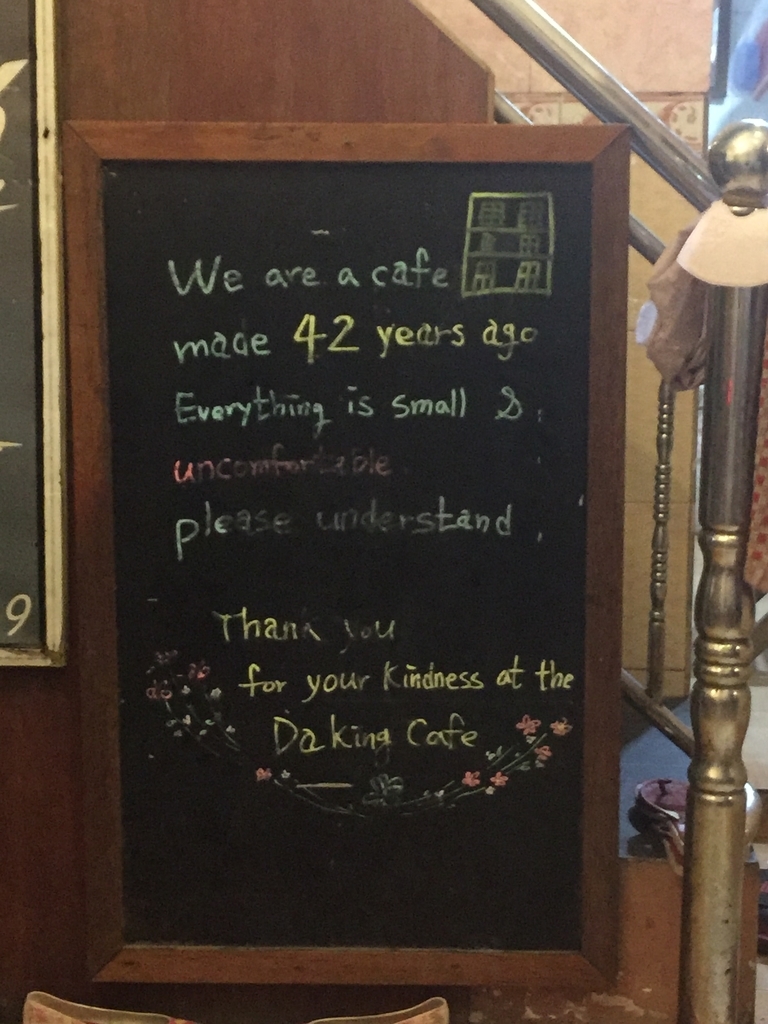 We are a cafe
made 42 years ago
Everything is small &
uncomfortable.
please understand.
Thank you
for your kindness at the
Daking Cafe
9